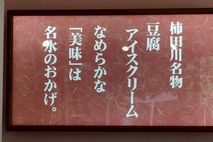 柿田川名物
豆腐
アイスクリーム
なめらかな
「美味」は
名水のおかげ。